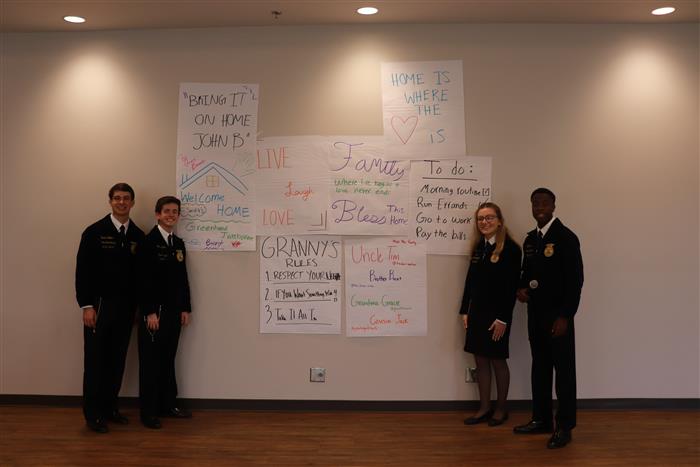 "BRING IT
ON HOME
JOHN B"
Welcome
HOME
HOME IS
WHERE
THE
IS
LIVE
Laugh
LOVE
Family
Where life begins &
love never ends
Bless This
Home
To do:
Morning routine
Run Errands
Go to work
Pay the bills
GRANNY'S
RULES
1. RESPECT YOUR
2. IF YOU WANT SOMETHING
3 Take It All In
Uncle Tim
Brother Brant
Grandma Gracie
Cousin Jack